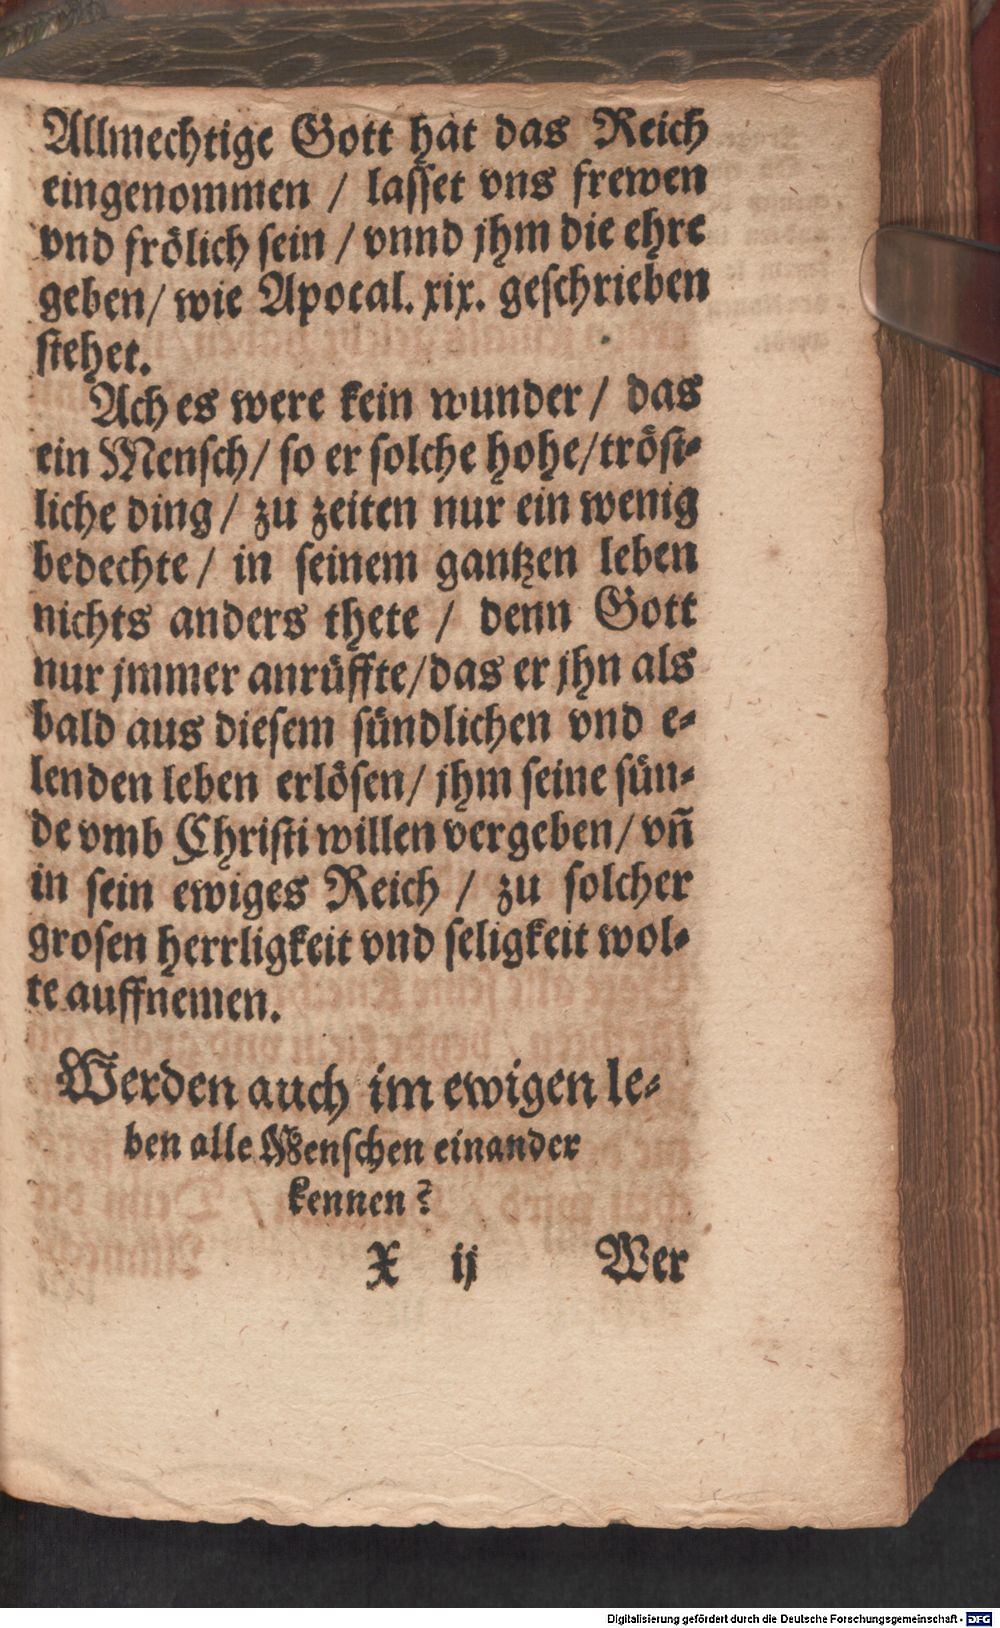 Allmechtige Gott hat das Reich
eingenommen / lasset vns frewen
vnd frölich sein / vnnd jhm die ehre
geben / wie Apocal. xix. geschrieben
stehet.
Ach es were kein wunder / das
ein Mensch / so er solche hohe / tröst-
liche ding / zu zeiten nur ein wenig
bedechte / in seinem gantzen leben
nichts anders thete / denn Gott
nur jmmer anrüffte / das er jhn als
bald aus diesem sündlichen vnd e-
lenden leben erlösen / jhm seine sün-
de vmb Christi willen vergeben / vñ
in sein ewiges Reich / zu solcher
grosen herrligkeit vnd seligkeit wol-
te auffnemen.
Werden auch im ewigen le-
ben alle Menschen einander
kennen?
X ij Wer
Digitalisierung gefördert durch die Deutsche Forschungsgemeinschaft - DFG